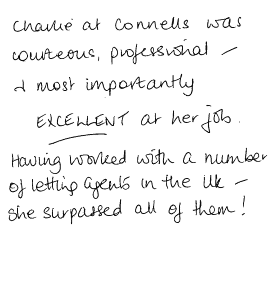 Charlie at Connells was
courteous, professional –
& most importantly
EXCELLENT at her job.
Having worked with a number
of letting agents in the UK –
she surpassed all of them!